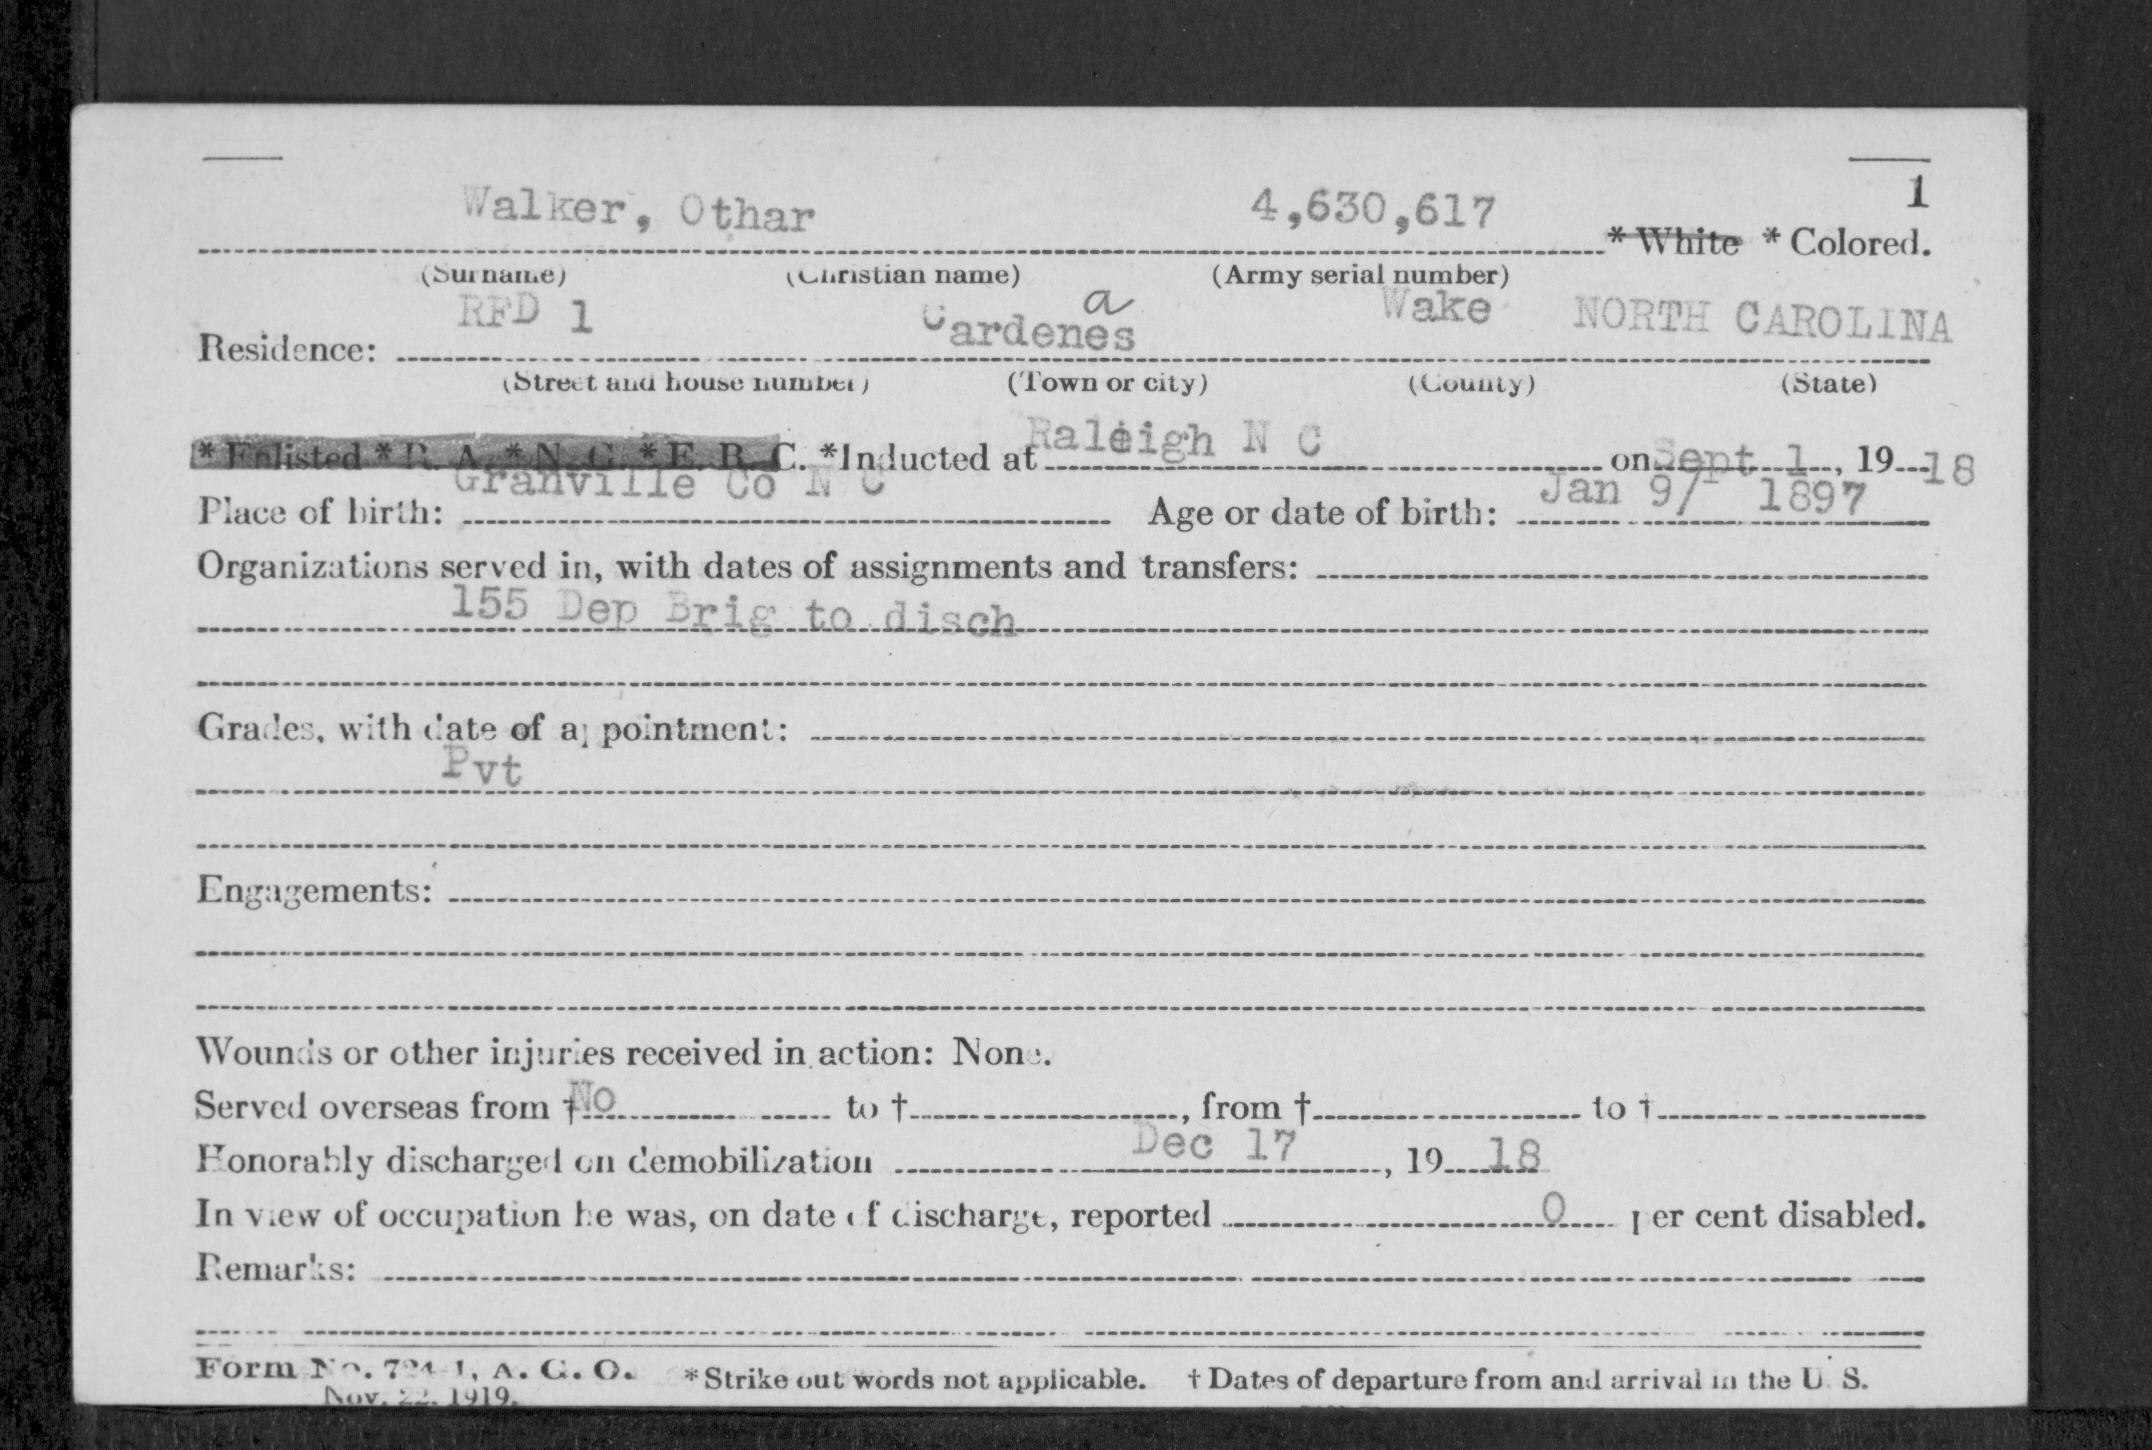 1
Walker, Othar 4,630,617 * White * Colored.
(Surname) (Christian name) (Army serial number)
a
RFD 1 Cardenes Wake NORTH CAROLINA
Residence:
(Street and house number) (Town or city) (County) (State)
* Enlisted * R. A. * N. G. * E. R. C. *Inducted at Raleigh N C on Sept 1, 19 18
Place of birth: Granville Co N C Age or date of birth: Jan 9/ 1897
Organizations served in, with dates of assignments and transfers:
155 Dep Brig to disch
Grades, with date of appointment:
Pvt
Engagements:
Wounds or other injuries received in action: None.
Served overseas from † No to †, from † to †
Honorably discharged on demobilization Dec 17, 19 18
In view of occupation he was, on date of discharge, reported 0 per cent disabled.
Remarks:
Form No. 724-1, A. G. O. * Strike out words not applicable. † Dates of departure from and arrival in the U. S.
Nov. 22, 1919.